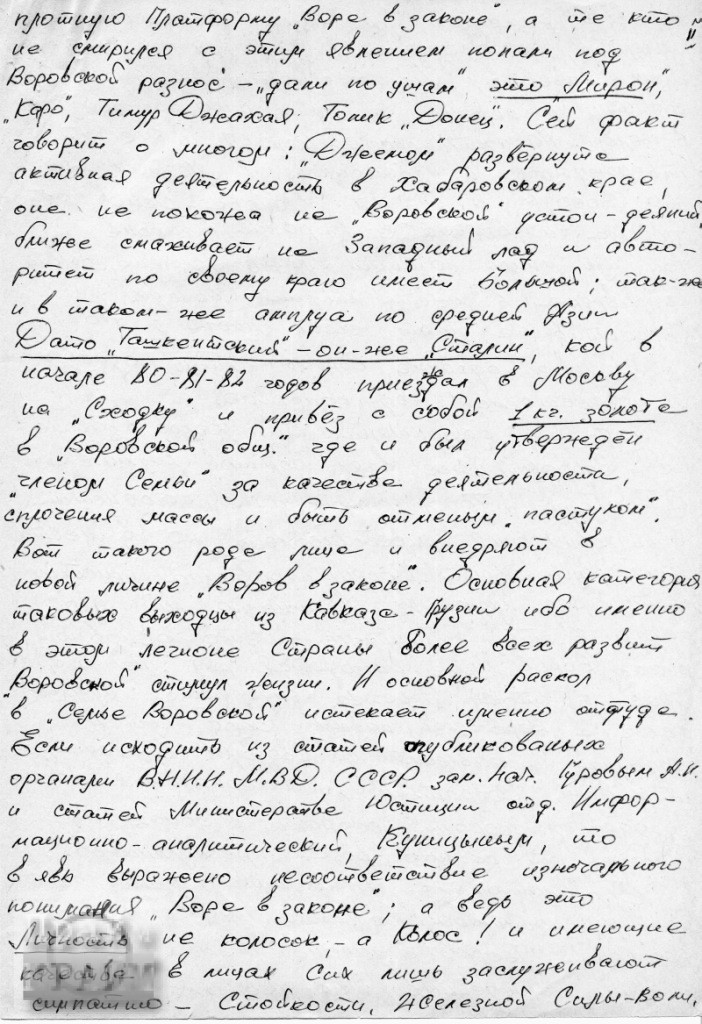 противную Платформу „Вора в законе", а те кто
не смирился с этим явлением попали под
Воровской разнос – „дали по ушам" это „Мирон",
„Каро", Тимур Джахая, Толик „Донец". Сей факт
говорит о многом: „Джемом" развёрнута
активная деятельность в Хабаровском крае,
она не похожа на „Воровской" устои-деяний,
ближе смахивает на Западный лад и авто-
ритет по своему краю имеет Большой; так-же
и в таком-же амплуа по средней Азии
Дато „Ташкентский" – он-же „Сталин", кой в
начале 80-81-82 годов приезжал в Москву
на „Сходку" и привёз с собой 1 кг. золота
в „Воровской общ." где и был утверждён
„членом Семьи" за качества деятельности,
сплочения массы и быть отменым „пастухом".
Вот такого рода лица и внедряют в
новой личине „Воров в законе". Основная категория
таковых выходцы из Кавказа-Грузии ибо именно
в этом легионе Страны более всех развит
„Воровской" стимул жизни. И основной раскол
в „Семье Воровской" истекает именно оттуда.
Если исходить из статей опубликованых
органами В.Н.И.И. М.В.Д. СССР. зам. нач. Гуровым А.И.
и статей Министерства Юстиции отд. Инфор-
мационно-аналитический, Куницыным, то
в явь выражено несоответствие изначального
понимания „Вора в законе"; а ведь это
Личность не колосок, – а Колос! и имеющие
качества в лицах Сих лишь заслуживают
симпатию – Стойкости, Железной Силы-Воли,